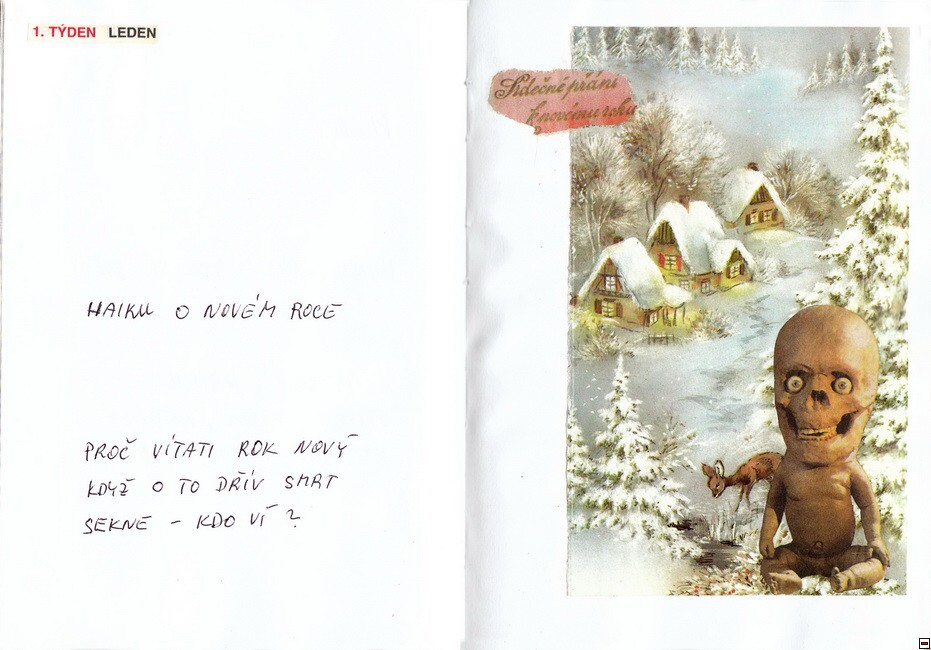 1. TÝDEN LEDEN
HAIKU O NOVÉM ROCE
PROČ VÍTATI ROK NOVÝ
KDYŽ O TO DŘÍV SMRT
SEKNE – KDO VÍ?
Srdečné přání
k novému roku